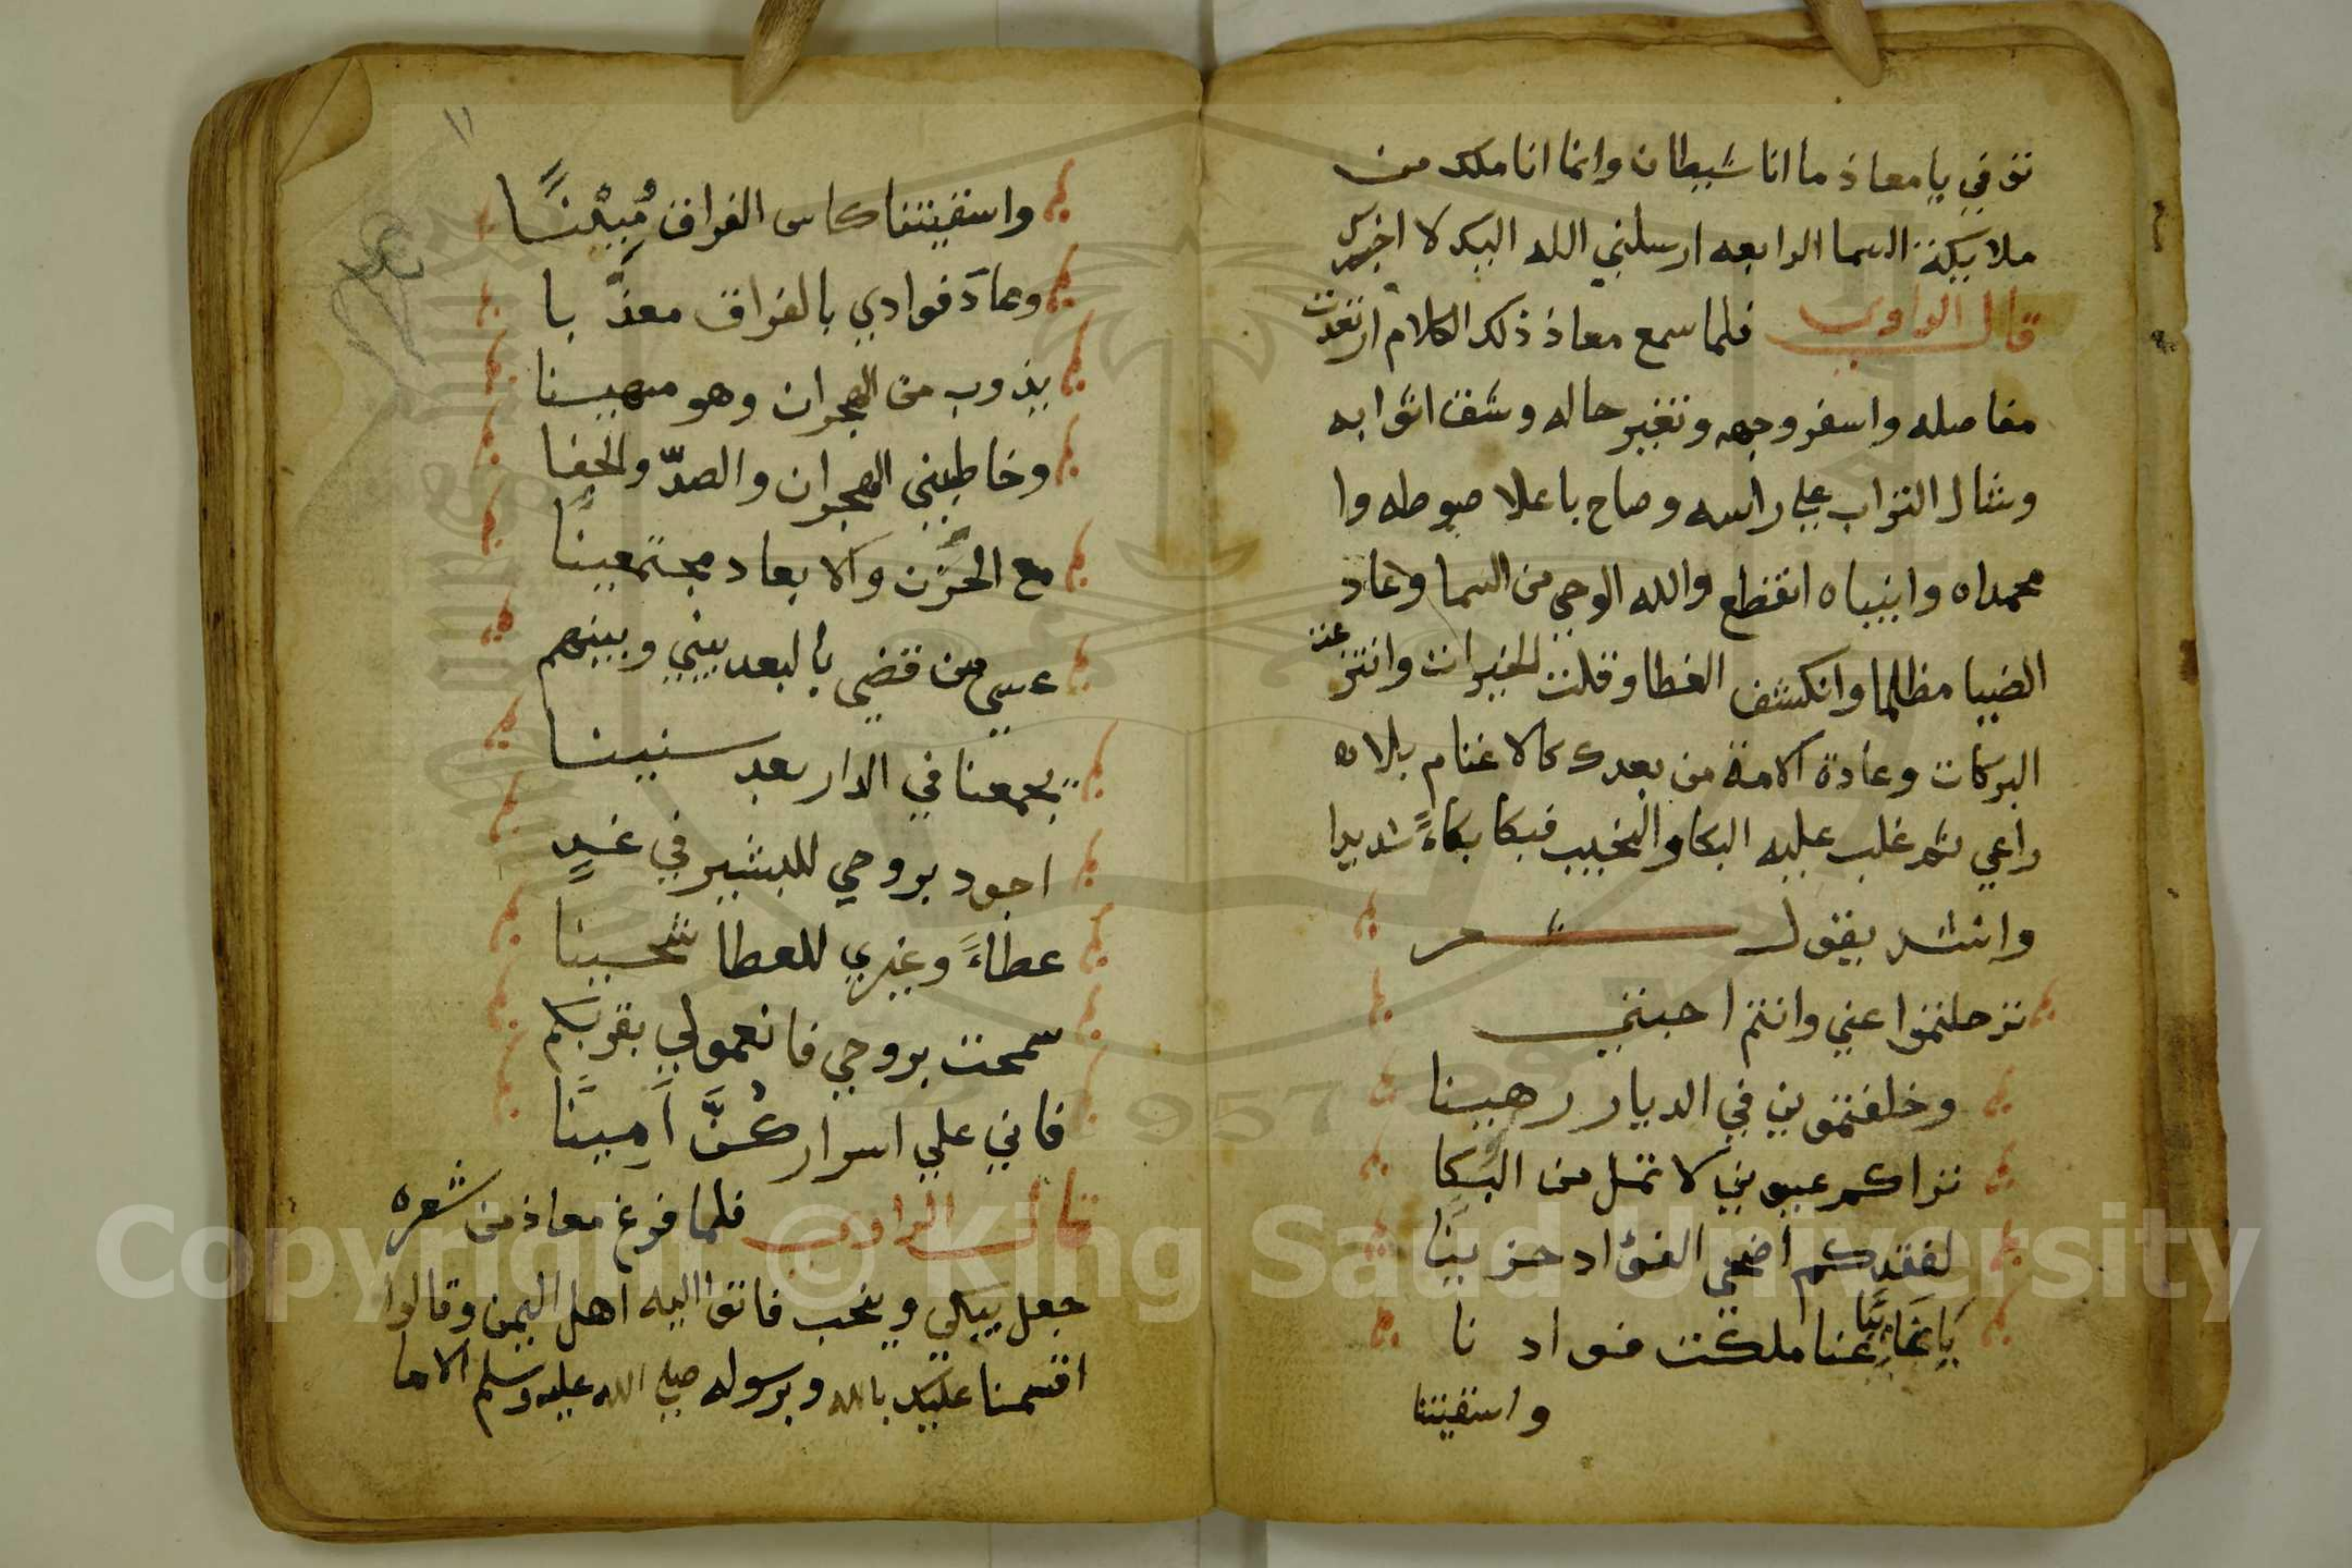 توفي يا معاذ ما انا شيطان وانما انا ملك من
ملايكة السما الرابعه ارسلني الله اليك لا اخبرك
قال الراوي فلما سمع معاذ ذلك الكلام ارتعدت
مفاصله واسفر وجهه وتغير حاله وشق اثوابه
وشال التراب علي راسه وصاح باعلا صوطه وا
محمداه وانبياه انقطع والله الوحي من السما وعاد
الضيا مظلما وانكشف الغطا وقلت الخيرات وانتزعت
البركات وعادة الامة من بعدك كالاغنام بلا
راعي ثم غلب عليه البكا والنحيب فبكا بكاءً شديدا
وانشد يقول شعر
ترحلتموا عني وانتم احبتي
وخلفتموني في الديار رهينا
تراكم عيوني لا تمل من البكا
لفقدكم اضحي الفؤاد حزينا
يا غايبًا عنا ملكت فواد نا
واسقيتنا
١١
واسقيتنا كاس الفراق مُبيْنًا
وعادَ فوادي بالفراق معذّ با
يذوب من الهجران وهو مهينا
وخاطبني الهجران والصدّ والجفا
مع الحُزن والابعاد مجتمعينا
عسي من قضي بالبعد بيني وبينهم
يجمعنا في الدار بعد سنينا
اجود بروحي للبشير في غدٍ
عطاءً وغيري للعطا شحينا
سمحت بروحي فانعمولي بقربكم
فاني علي اسرار كنَّ اَمينًا
قال الراوي فلما فرغ معاذ من شعره
جعل يبكي وينحب فاتوا اليه اهل اليمن وقالوا
اقسمنا عليك بالله وبرسوله صلي الله عليه وسلم الا ما
Copyright © King Saud University
1957